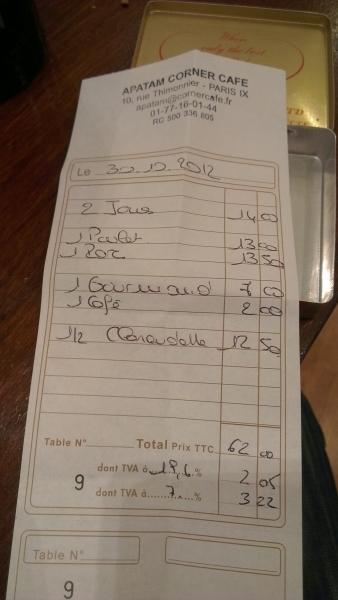 APATAM CORNER CAFE
10, rue Thimonnier - PARIS IX
apatam@cornercafe.fr
01-77-16-01-44
RC 500 336 805
Le 30.10.2012
2 Jours 14 00
1 Poulet 13 00
1 Porc 13 50
1 Gourmand 7 00
1 Café 2 00
1/2 Clarendelle 12 50
Table N° Total Prix TTC 62 00
dont TVA à 19,6 % 2 05
9 dont TVA à 7 % 3 22
Table N°
9